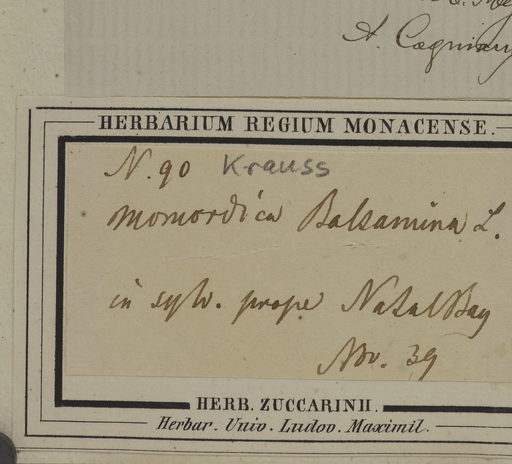 A. Cogniaux
HERBARIUM REGIUM MONACENSE.
N. 90 Krauss
Momordica Balsamina L.
in sylv. prope Natal Bay
Nov. 39
HERB. ZUCCARINII.
Herbar. Univ. Ludov. Maximil.